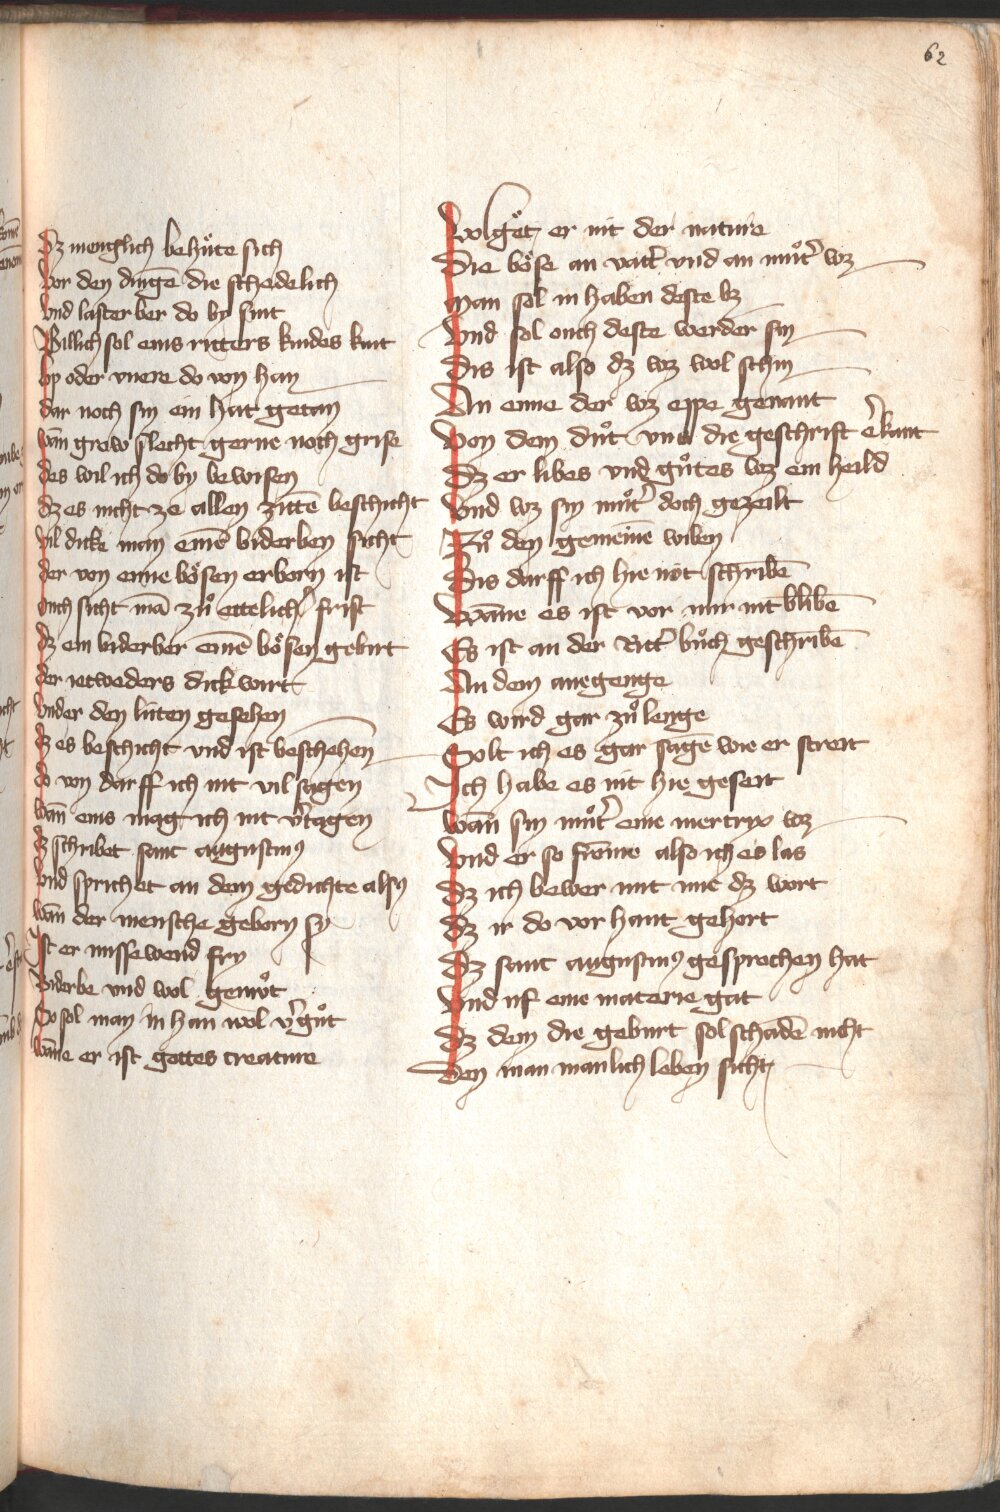 62
Dz menglich behuͤte sich
Vor den dingē die schedelich
Vnd lasterber do by sint
Billich sol eins ritters kindes kint
by oder vnere do von han
dar noch sin ein hat getan
wān grow slecht gerne noch grise
des wil ich do by bewisen
dz es nicht ze allen zittē beschicht
vil dicke man einē biderben sicht
der von eime boͤsen erborn ist
ouch sicht mā zuͦ ettelichˀ frist
dz ein biderber einē boͤsen geburt
der ietweders dick wurt
vnder den lúten gesehen
dz es beschicht vnd ist beschehen
do von darff ich nit vil sagen
wān eins mag ich nit vˀtagen
dz schribet sant augustinꝰ
vnd sprichet an dem gedichte alsꝰ
wān der mensche geborn sy
Ist er missewend fry
biderbe vnd wol gemuͦt
So sol man in han wol vˀguͦt
wāne er ist gottes creature
Volget er nit der nature
Die boͤse an vattˀ vnd an muͦtˀ wz
Man sol in haben deste bz
Vnd sol ouch deste werder sin
Dis ist also dz wz wol schin
An eime der wz eppe genant
Von dem duͦt vns die geschrift ˀkant
Dz er libes vnd guͦtes wz ein heild
Vnd wz sin muͦtˀ doch gezeilt
Zuͦ den gemeinē wiben
Dis darff ich hie nöt schribē
Wāne es ist vor mir nit blibē
Es ist an der Rittˀ buͦch geschribē
An dem anegenge
Es wird gar zuͦ lenge
Solt ich es gar sagē wie er streit
Ich habe es nit hie geseit
Wān sin muͦtˀ eine mertryx wz
Vnd er so frōme also ich es las
Dz ich bewer mit ime dz wort
Dz ir do vor hant gehort
Dz sant augustinꝰ gesprochen hat
Vnd vf eine materie gat
Dz dem die geburt sol schadē nicht
Den man manlich leben sicht